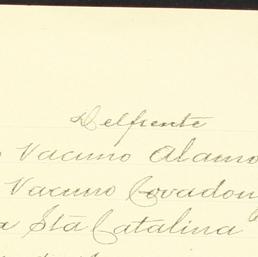 Del frente
Vacuno Alamo
Vacuno Covadon
a Stā Catalina